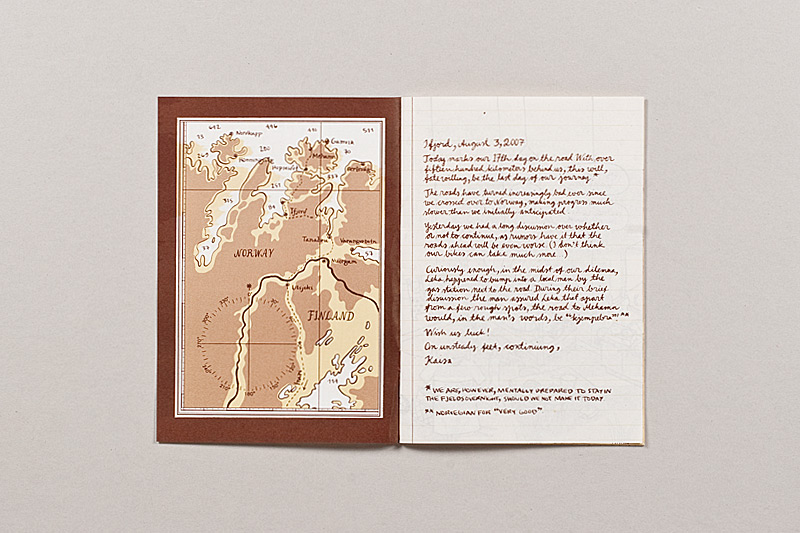 642
446
491
531
33
Nordkapp
Gamvik
30
269
280
Mehamn
Honningsvåg
Hopseidet
Berlevåg
325
257
333
84
Ifjord
NORWAY
Tanabru
Varangerbotn
57
Nuorgam
Utsjoki
FINLAND
180°
114
Ifjord, August 3, 2007
Today marks our 17th day on the road. With over
fifteen hundred kilometers behind us, this will,
fate willing, be the last day of our journey. *
The roads have turned increasingly bad ever since
we crossed over to Norway, making progress much
slower than we initially anticipated.
Yesterday we had a long discussion over whether
or not to continue, as rumors have it that the
roads ahead will be even worse. (I don't think
our bikes can take much more...)
Curiously enough, in the midst of our dilemma,
Leha happened to bump into a local man by the
gas station next to the road. During their brief
discussion the man assured Leha that apart
from a few rough spots, the road to Mehamn
would, in the man's words, be "kjempebra"! **
Wish us luck!
On unsteady feet, continuing,
Kaisa
* WE ARE, HOWEVER, MENTALLY PREPARED TO STAY IN
THE FJELDS OVERNIGHT, SHOULD WE NOT MAKE IT TODAY
** NORWEGIAN FOR "VERY GOOD"